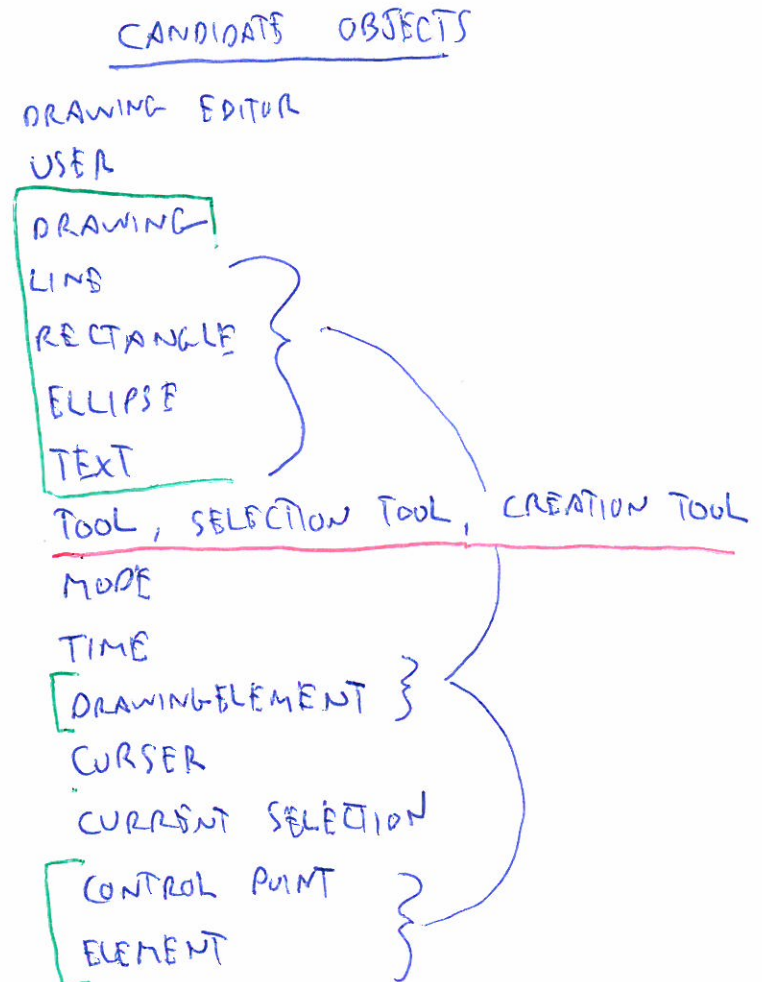 CANDIDATE OBJECTS
DRAWING EDITOR
USER
DRAWING
LINE
RECTANGLE
ELLIPSE
TEXT
TOOL, SELECTION TOOL, CREATION TOOL
MODE
TIME
DRAWING-ELEMENT
CURSER
CURRENT SELECTION
CONTROL POINT
ELEMENT